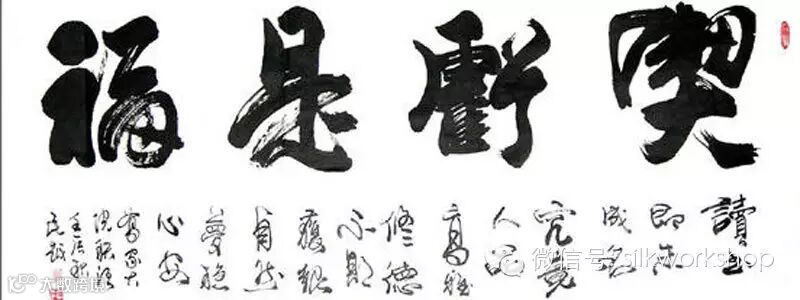 喫虧是福
讀書
即未
成名
究竟
人品
高雅
修德
不期
獲報
自然
夢穩
心安
微信号：silkworkshop
大数跨境